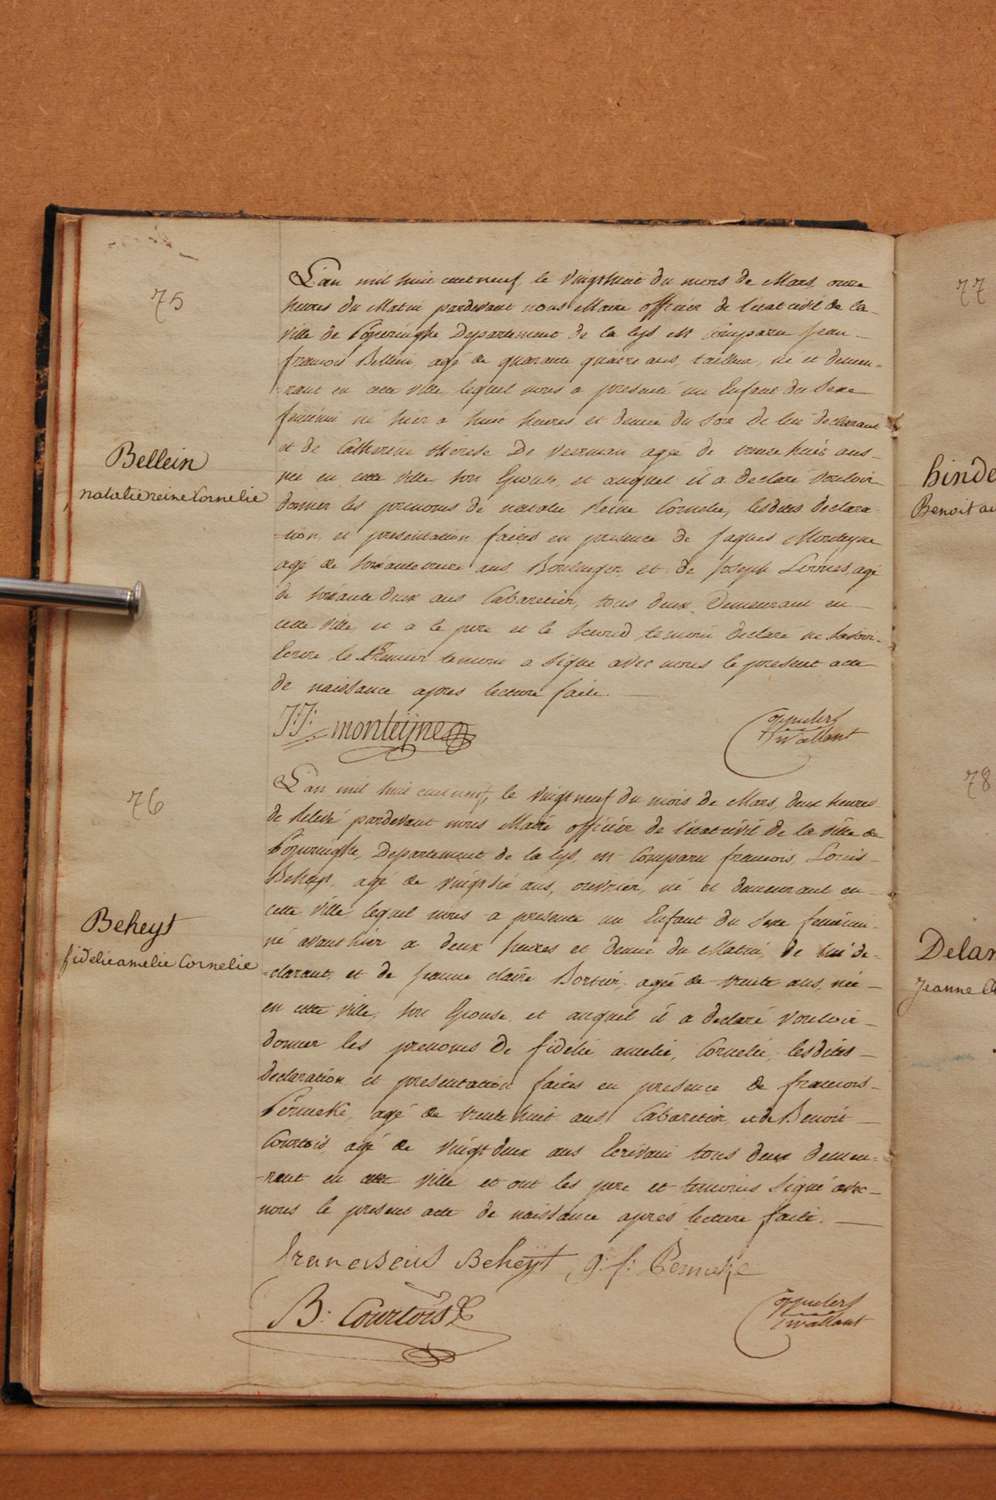 75
Bellein
natalie reine Cornelie
L'an mil huit cent neuf le vingt huit du mois de Mars, onze
heures du Matin pardevant nous Maire officier de l'etat civil de la
ville de Poperinghe Departement de la lys est comparu jean
francois Bellein, agé de quarante quatre ans, tailleur, né et demeu-
rant en cette ville lequel nous a presenté un Enfant du Sexe
feminin né hier a huit heures et demie du Soir de lui declarant
et de Catherine therese De Veerman agée de trente huit ans
née en cette ville Son Epouse, et auquel il a declaré vouloir
donner les prenoms de natalie Reine Cornelie, lesdites declara-
tion et presentation faites en presence de jaques Monteyne
agé de Soixante ans Boulanger et de joseph agé
de Soixante deux ans Cabaretier, tous deux Demeurant en
cette ville, et a le pere et le Second temoin declaré ne Savoir
Ecrire le Premier temoin a Signé avec nous le present acte
de naissance apres lecture faite.
J: J: monteijne
76
Beheyt
fidelie amelie Cornelie
L'an mil huit cent neuf, le vingt neuf du mois de Mars, deux heures
de Relevé pardevant nous Maire officier de l'etat civil de la ville de
Poperinghe, Departement de la lys, est Comparu francois Louis
Beheyt, agé de vingt six ans, ouvrier, né et demeurant en
cette ville lequel nous a presenté un Enfant du Sexe feminin
né avant hier a deux heures et demie du Matin, de lui de-
clarant, et de jeanne claire Bortier, agée de trente ans, née
en cette ville, Son Epouse et auquel il a declaré vouloir
donner les prenoms de fidelie amelie, Cornelie, lesdites
Declaration et presentation faites en presence de francois
Permeke, agé de trente huit ans Cabaretier et de Benoit
Courtois, agé de vingt deux ans Ecrivain tous deux demeu-
rant en cette ville et ont les pere et temoins Signé avec
nous le present acte de naissance apres lecture faite.
Franciscus Beheÿt
B: Courtois
77
hinde
Benoit
78
Delar
Jeanne